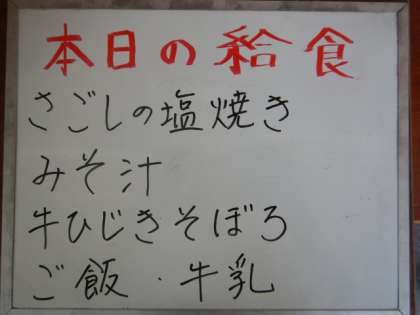 本日の給食
さごしの塩焼き
みそ汁
牛ひじきそぼろ
ご飯・牛乳